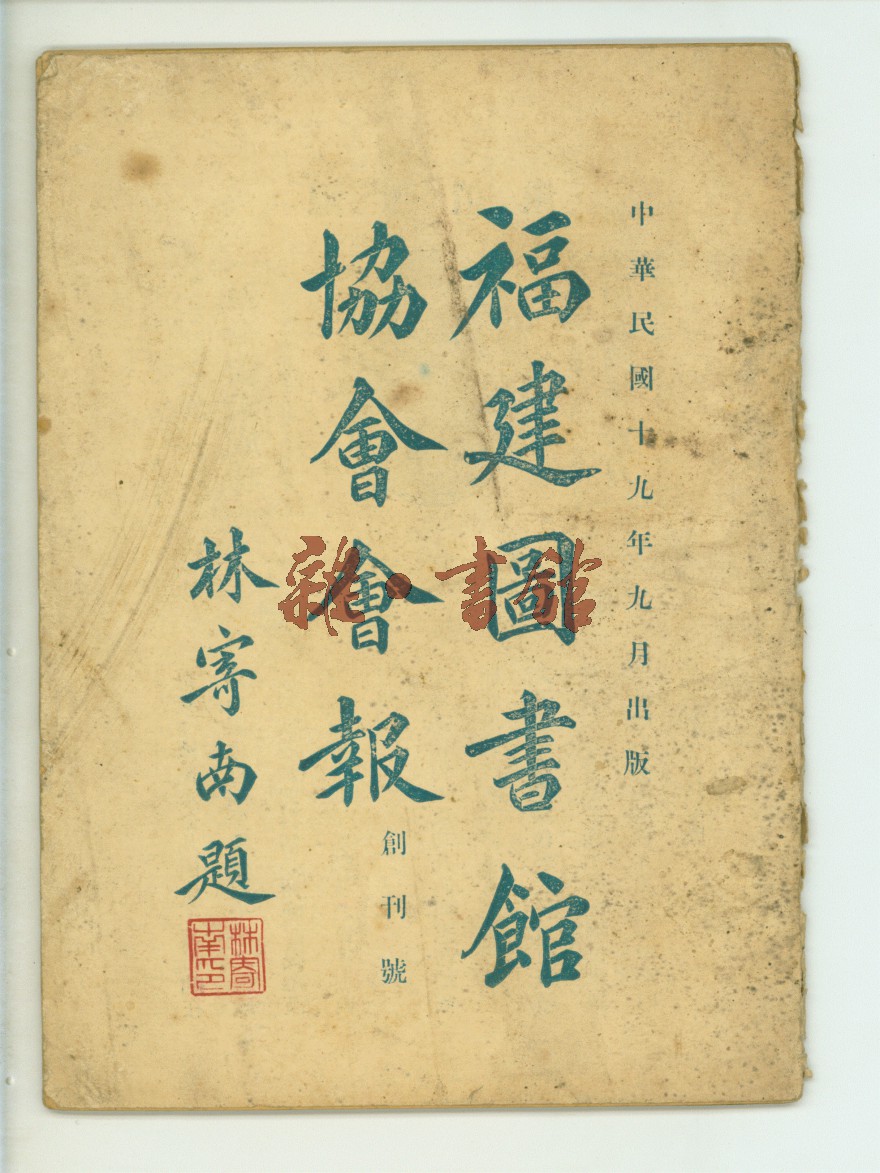 中華民國十九年九月出版
福建圖書館
協會會報
創刊號
林寄南題
林寄南印
雜·書館